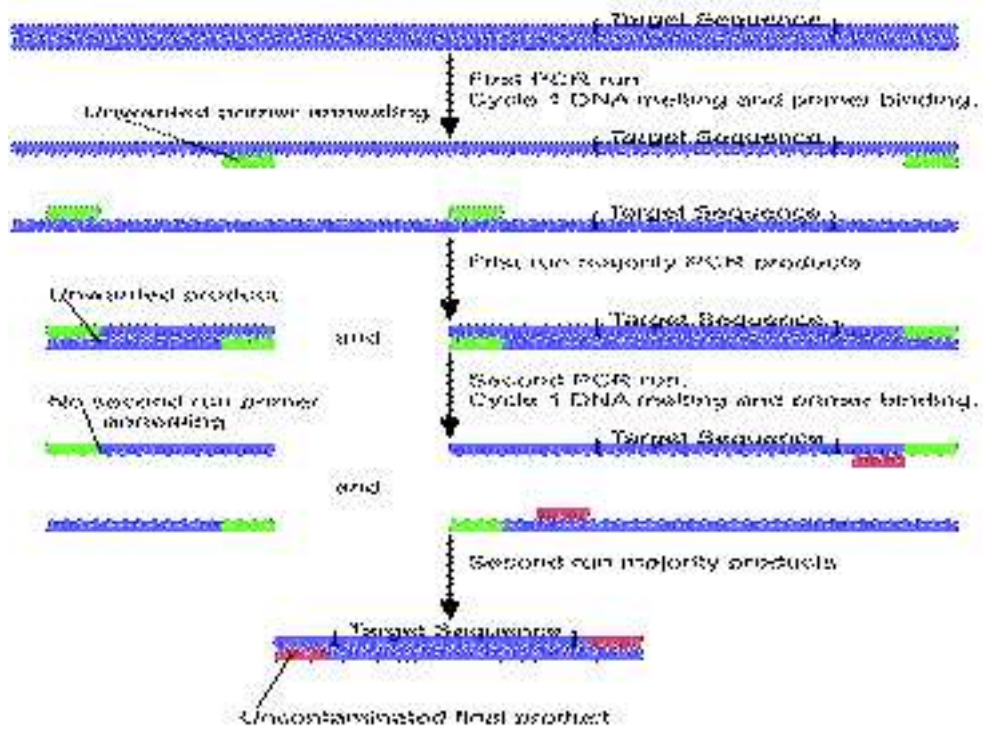 Target Sequence
First PCR run
Cycle 1 DNA melting and primer binding.
Unwanted primer annealing
Target Sequence
Target Sequence
First run majority PCR products
Unwanted product
Target Sequence
and
Second PCR run.
Cycle 1 DNA melting and primer binding.
No second run primer
annealing
Target Sequence
and
Second run majority products
Target Sequence
Uncontaminated final product